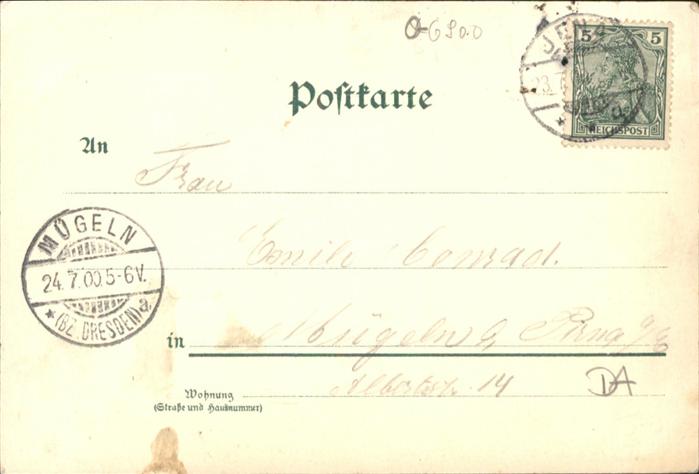 0-6900
JENA
23.7
5 5
REICHSPOST
Postkarte
An
Frau
Emilie Conrad.
MÜGELN
24.7.00.5-6V.
* (BZ. DRESDEN) a.
in Mügeln b. Pirna
Albertstr. 14
DA
Wohnung
(Straße und Hausnummer)